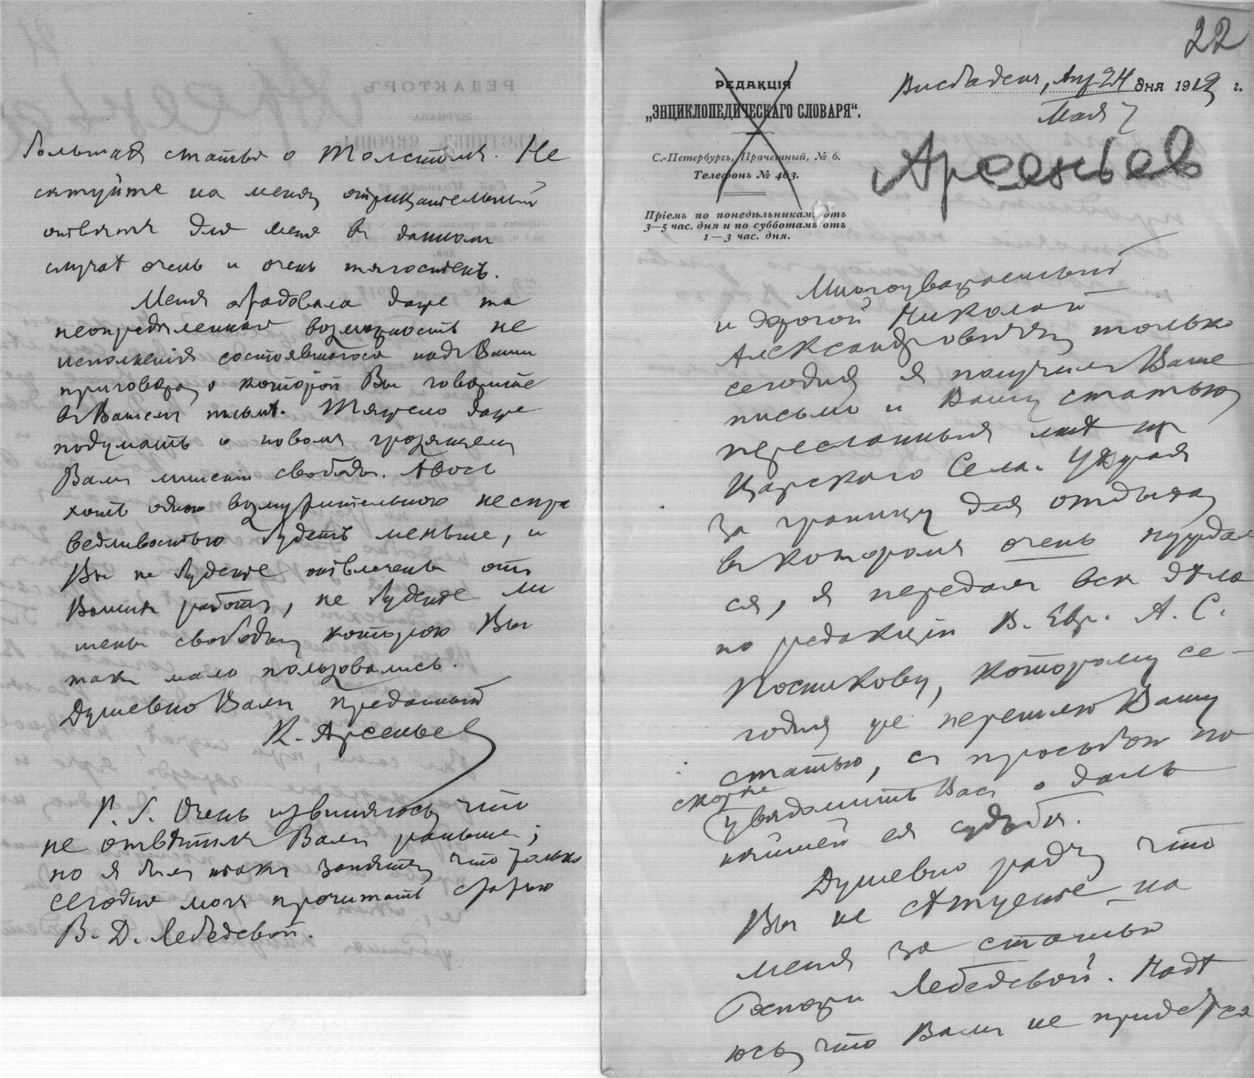 большая статья о Толстомъ. Не
сѣтуйте на меня, отрицательный
отвѣтъ для меня въ данномъ
случаѣ очень и очень тягостенъ.
Меня обрадовала даже та
неопредѣленная возможность не
исполненія состоявшагося надъ Вами
приговора, о которой Вы говорите
въ Вашемъ письмѣ. Тяжело даже
подумать о новомъ грозящемъ
Вамъ лишеніи свободы. Авось
хоть одною возмутительною неспра
ведливостью будетъ меньше, и
Вы не будете отвлечены отъ
Вашихъ работъ, не будете ли
шены свободы, которою Вы
такъ мало пользовались.
Душевно Вамъ преданный
К. Арсеньев
P. S. Очень извиняюсь, что
не отвѣтилъ Вамъ раньше;
но я былъ такъ занятъ, что только
сегодня могъ прочитать статью
В. Д. Лебедевой.
22
РЕДАКЦІЯ
„ЭНЦИКЛОПЕДИЧЕСКАГО СЛОВАРЯ“.
С.-Петербургъ, Прачешный, № 6.
Телефонъ № 463.
Пріемъ по понедѣльникамъ отъ
3—5 час. дня и по субботамъ отъ
1—3 час. дня.
Висбаденъ, Апр. 24 дня 1912 г.
Мая 7
Арсеньев
Многоуважаемый
и дорогой Николай
Александровичъ, только
сегодня я получилъ Ваше
письмо и Вашу статью,
пересланныя мнѣ изъ
Царскаго Села. Уѣзжая
за границу для отдыха,
въ которомъ очень нуждал
ся, я передалъ всѣ дѣла
по редакціи В. Евр. А. С.
Посникову, которому се-
годня же перешлю Вашу
статью, съ просьбой по
скорѣе
увѣдомить Васъ о даль
нѣйшей ея судьбѣ.
Душевно радъ, что
Вы не сѣтуете на
меня за статью
Госпожи Лебедевой. Надѣ
юсь, что Вамъ не придется